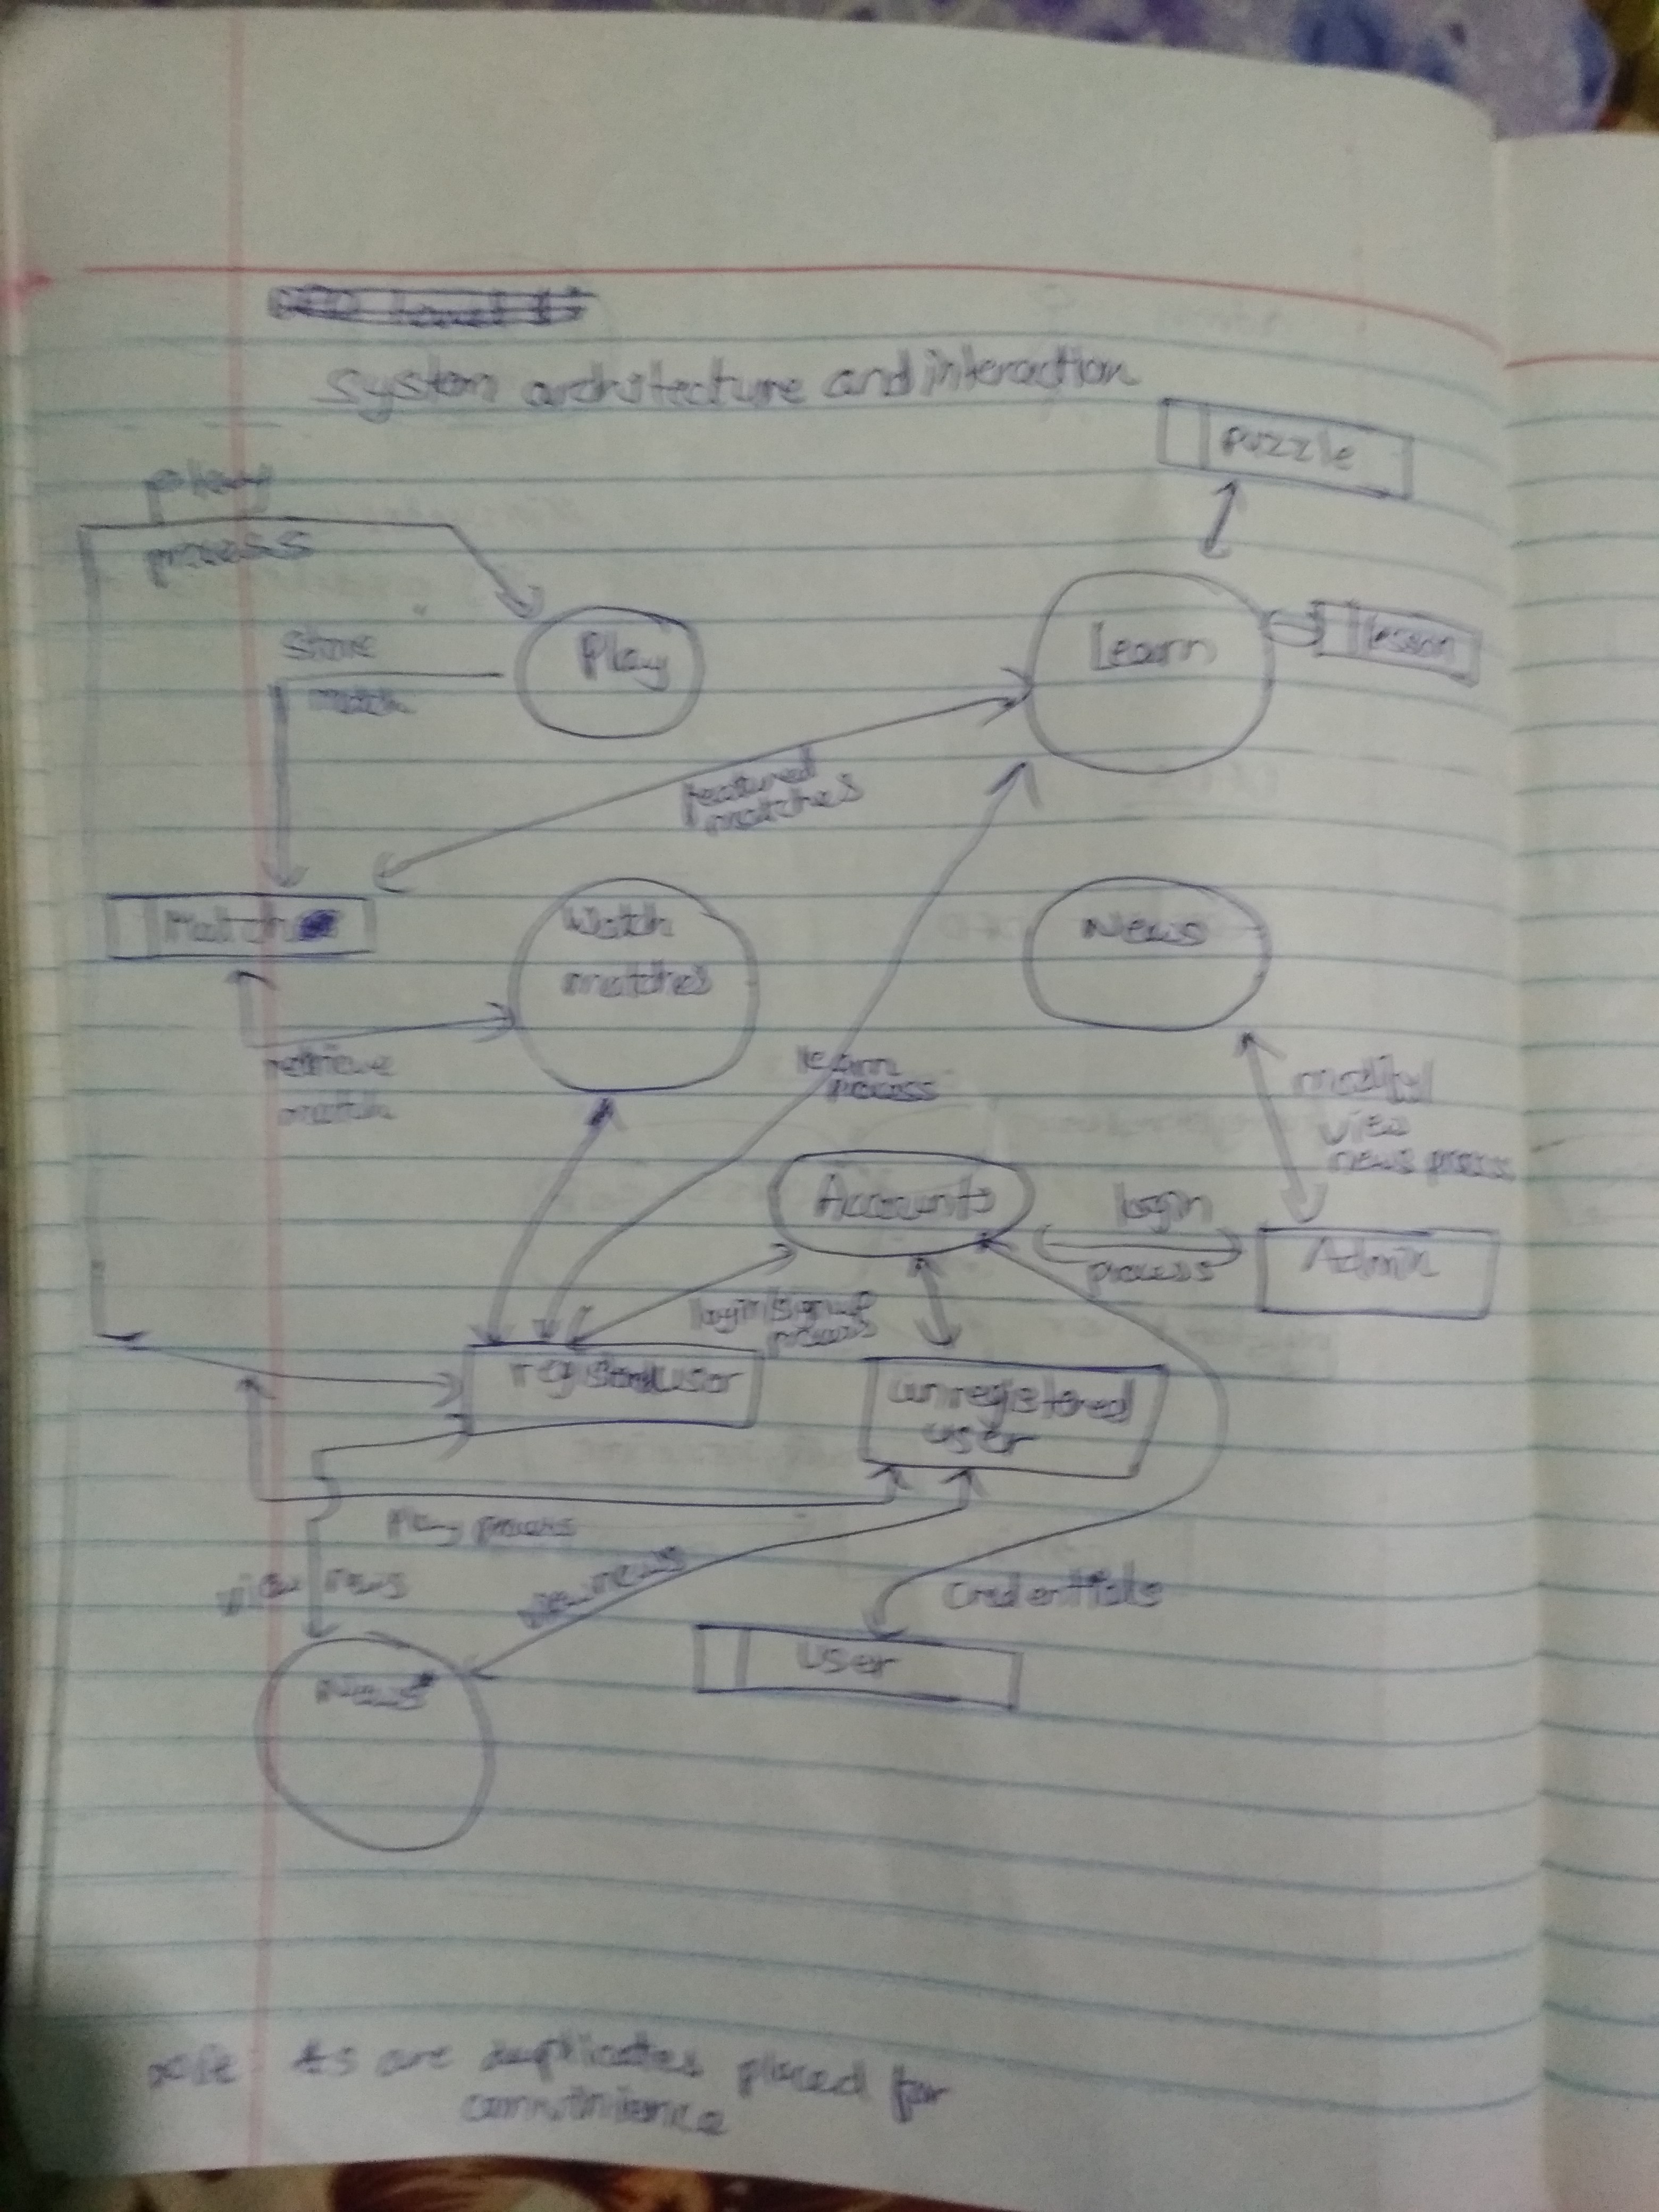 System architecture and interaction
puzzle
play
process
Play
Learn
lesson
store
match
featured
matches
Match
Watch
matches
News
retrieve
match
learn
process
modify/
view
news process
Accounts
login
process
Admin
login/signup
process
unregistered
user
Play process
view news
view news
credentials
News*
user
note *s are duplicates placed for